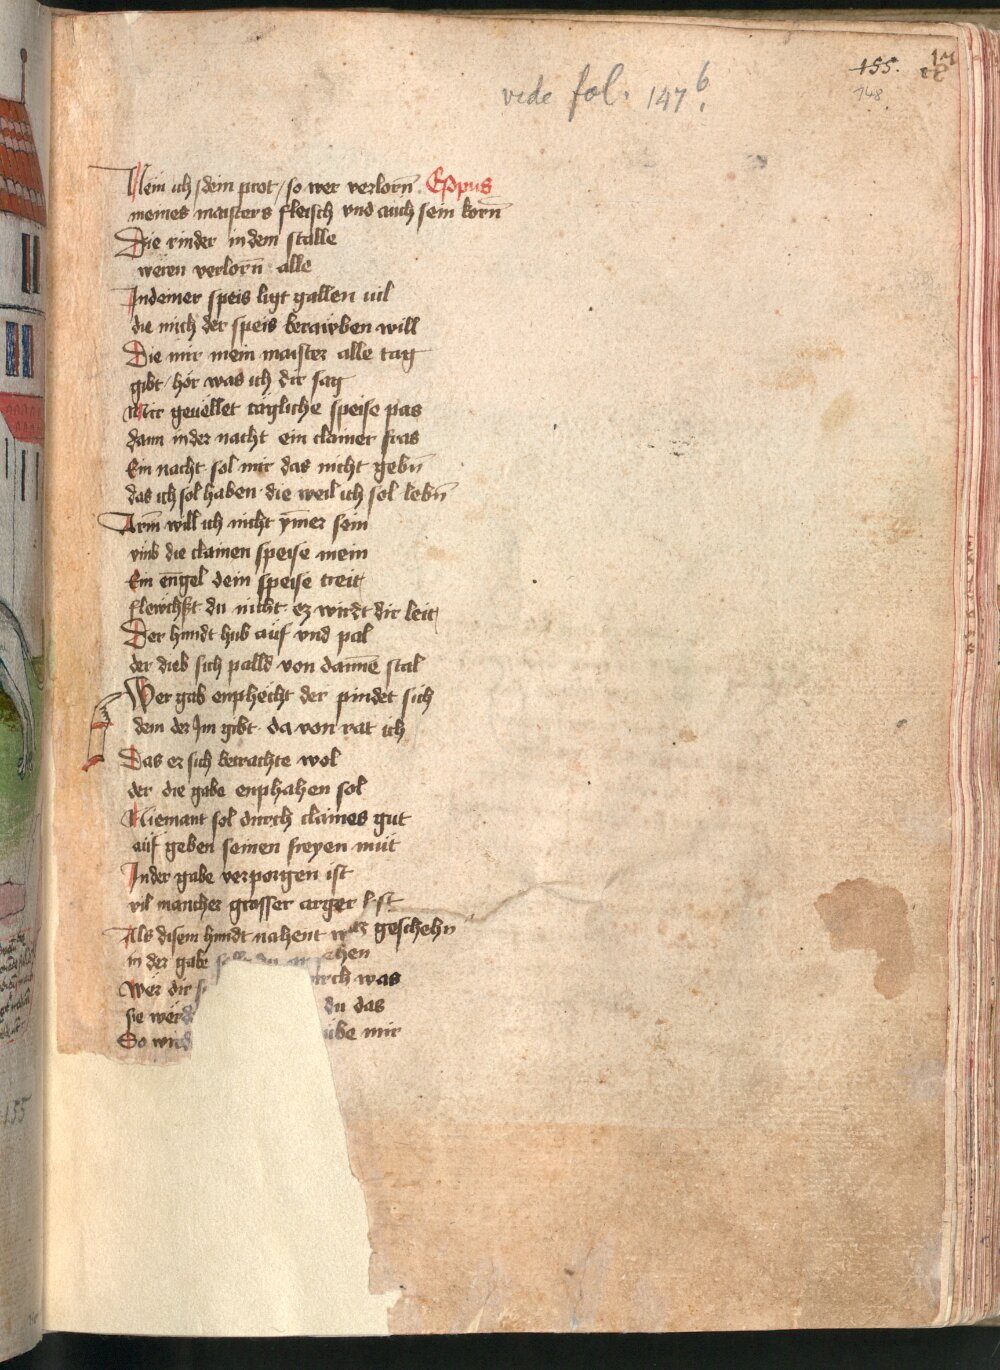 155.
148
vede fol. 147 b.
Nem ich dein prot / so wer verlorn̄ Esopus
meines maisters fleisch vnd auch sein korn̄
Die rinder in dem stalle
weren verlorn̄ alle
In deiner speis ligt gallen vil
die mich der speis berawben will
Die mir mein maister alle tag
gibt / hör was ich dir sag
Mir geuellet tägliche speise pas
dann in der nacht ein clainer fras
Ein nacht sol mir das nicht gebn̄
das ich sol haben die weil ich sol lebn̄
Arm̄ will ich nicht ym̄er sein
vmb die clainen speise mein
Ein engel dein speise treit
flewchst du nicht ez wirdt dir leit
Der hundt hub auf vnd pal
der dieb sich palld von dannē stal
Wer gab enphecht der pindet sich
dem der Im gibt da von rat ich
Das er sich betrachte wol
der die gabe enphahen sol
Niemant sol durch claines gut
auf geben seinen freyen mut
In der gabe verporgen ist
vil mancher grosser arger list
Als disem hundt nahent waz geschehn̄
in der gabe sehen
Wer dir durch was
sie werd du das
So wird übe mir
155